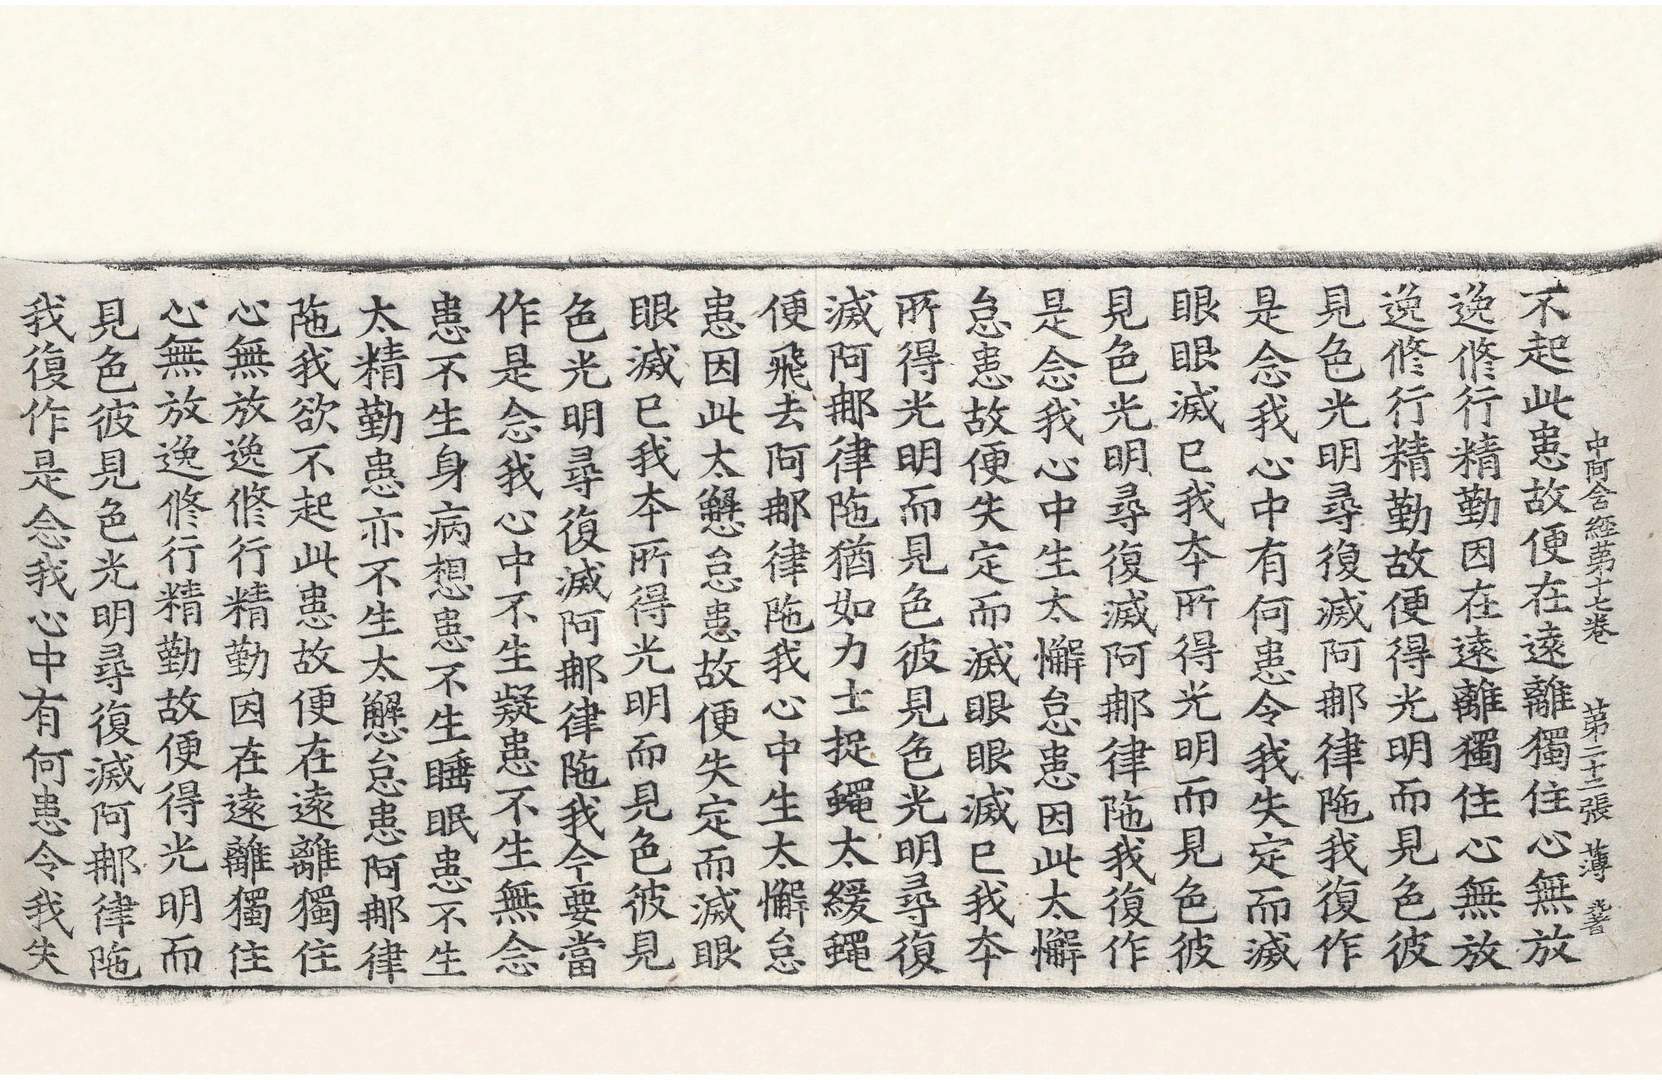 中阿含經第十七卷 第二十二張 薄
不起此患故便在遠離獨住心無放
逸修行精勤因在遠離獨住心無放
逸修行精勤故便得光明而見色彼
見色光明尋復滅阿那律陁我復作
是念我心中有何患令我失定而滅
眼眼滅已我本所得光明而見色彼
見色光明尋復滅阿那律陁我復作
是念我心中生太懈怠患因此太懈
怠患故便失定而滅眼眼滅已我本
所得光明而見色彼見色光明尋復
滅阿那律陁猶如力士捉蠅太緩蠅
便飛去阿那律陁我心中生太懈怠
患因此太懈怠患故便失定而滅眼
眼滅已我本所得光明而見色彼見
色光明尋復滅阿那律陁我今要當
作是念我心中不生疑患不生無念
患不生身病想患不生睡眠患不生
太精勤患亦不生太懈怠患阿那律
陁我欲不起此患故便在遠離獨住
心無放逸修行精勤因在遠離獨住
心無放逸修行精勤故便得光明而
見色彼見色光明尋復滅阿那律陁
我復作是念我心中有何患令我失